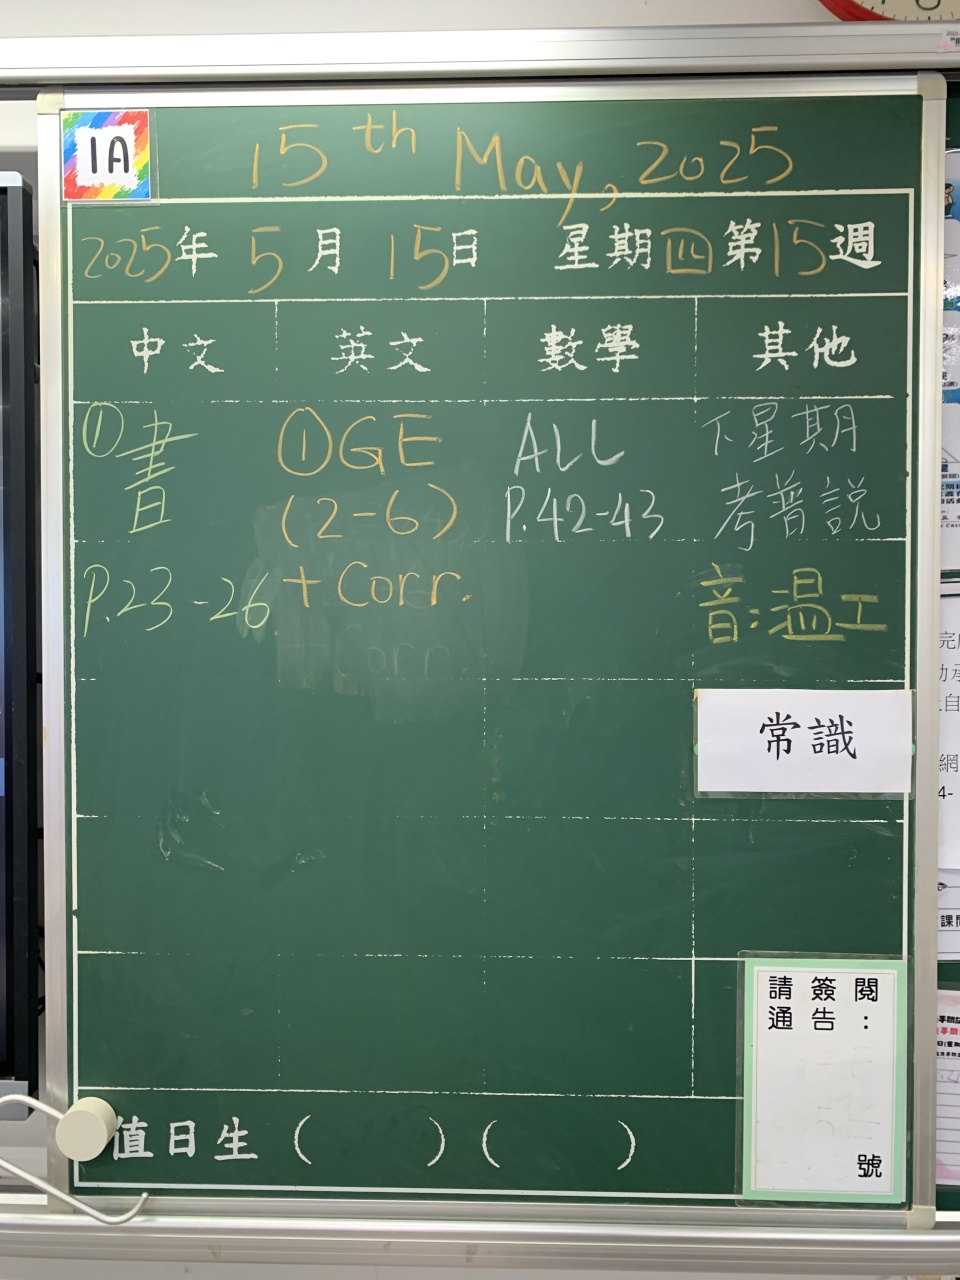 1A
15th May, 2025
2025年 5月 15日 星期四 第15週
中文 英文 數學 其他
①書
P.23-26
①GE
(2-6)
+Corr.
ALL
P.42-43
下星期
考普說
音:溫工
常識
請簽閱
通告:
號
值日生 ( ) ( )